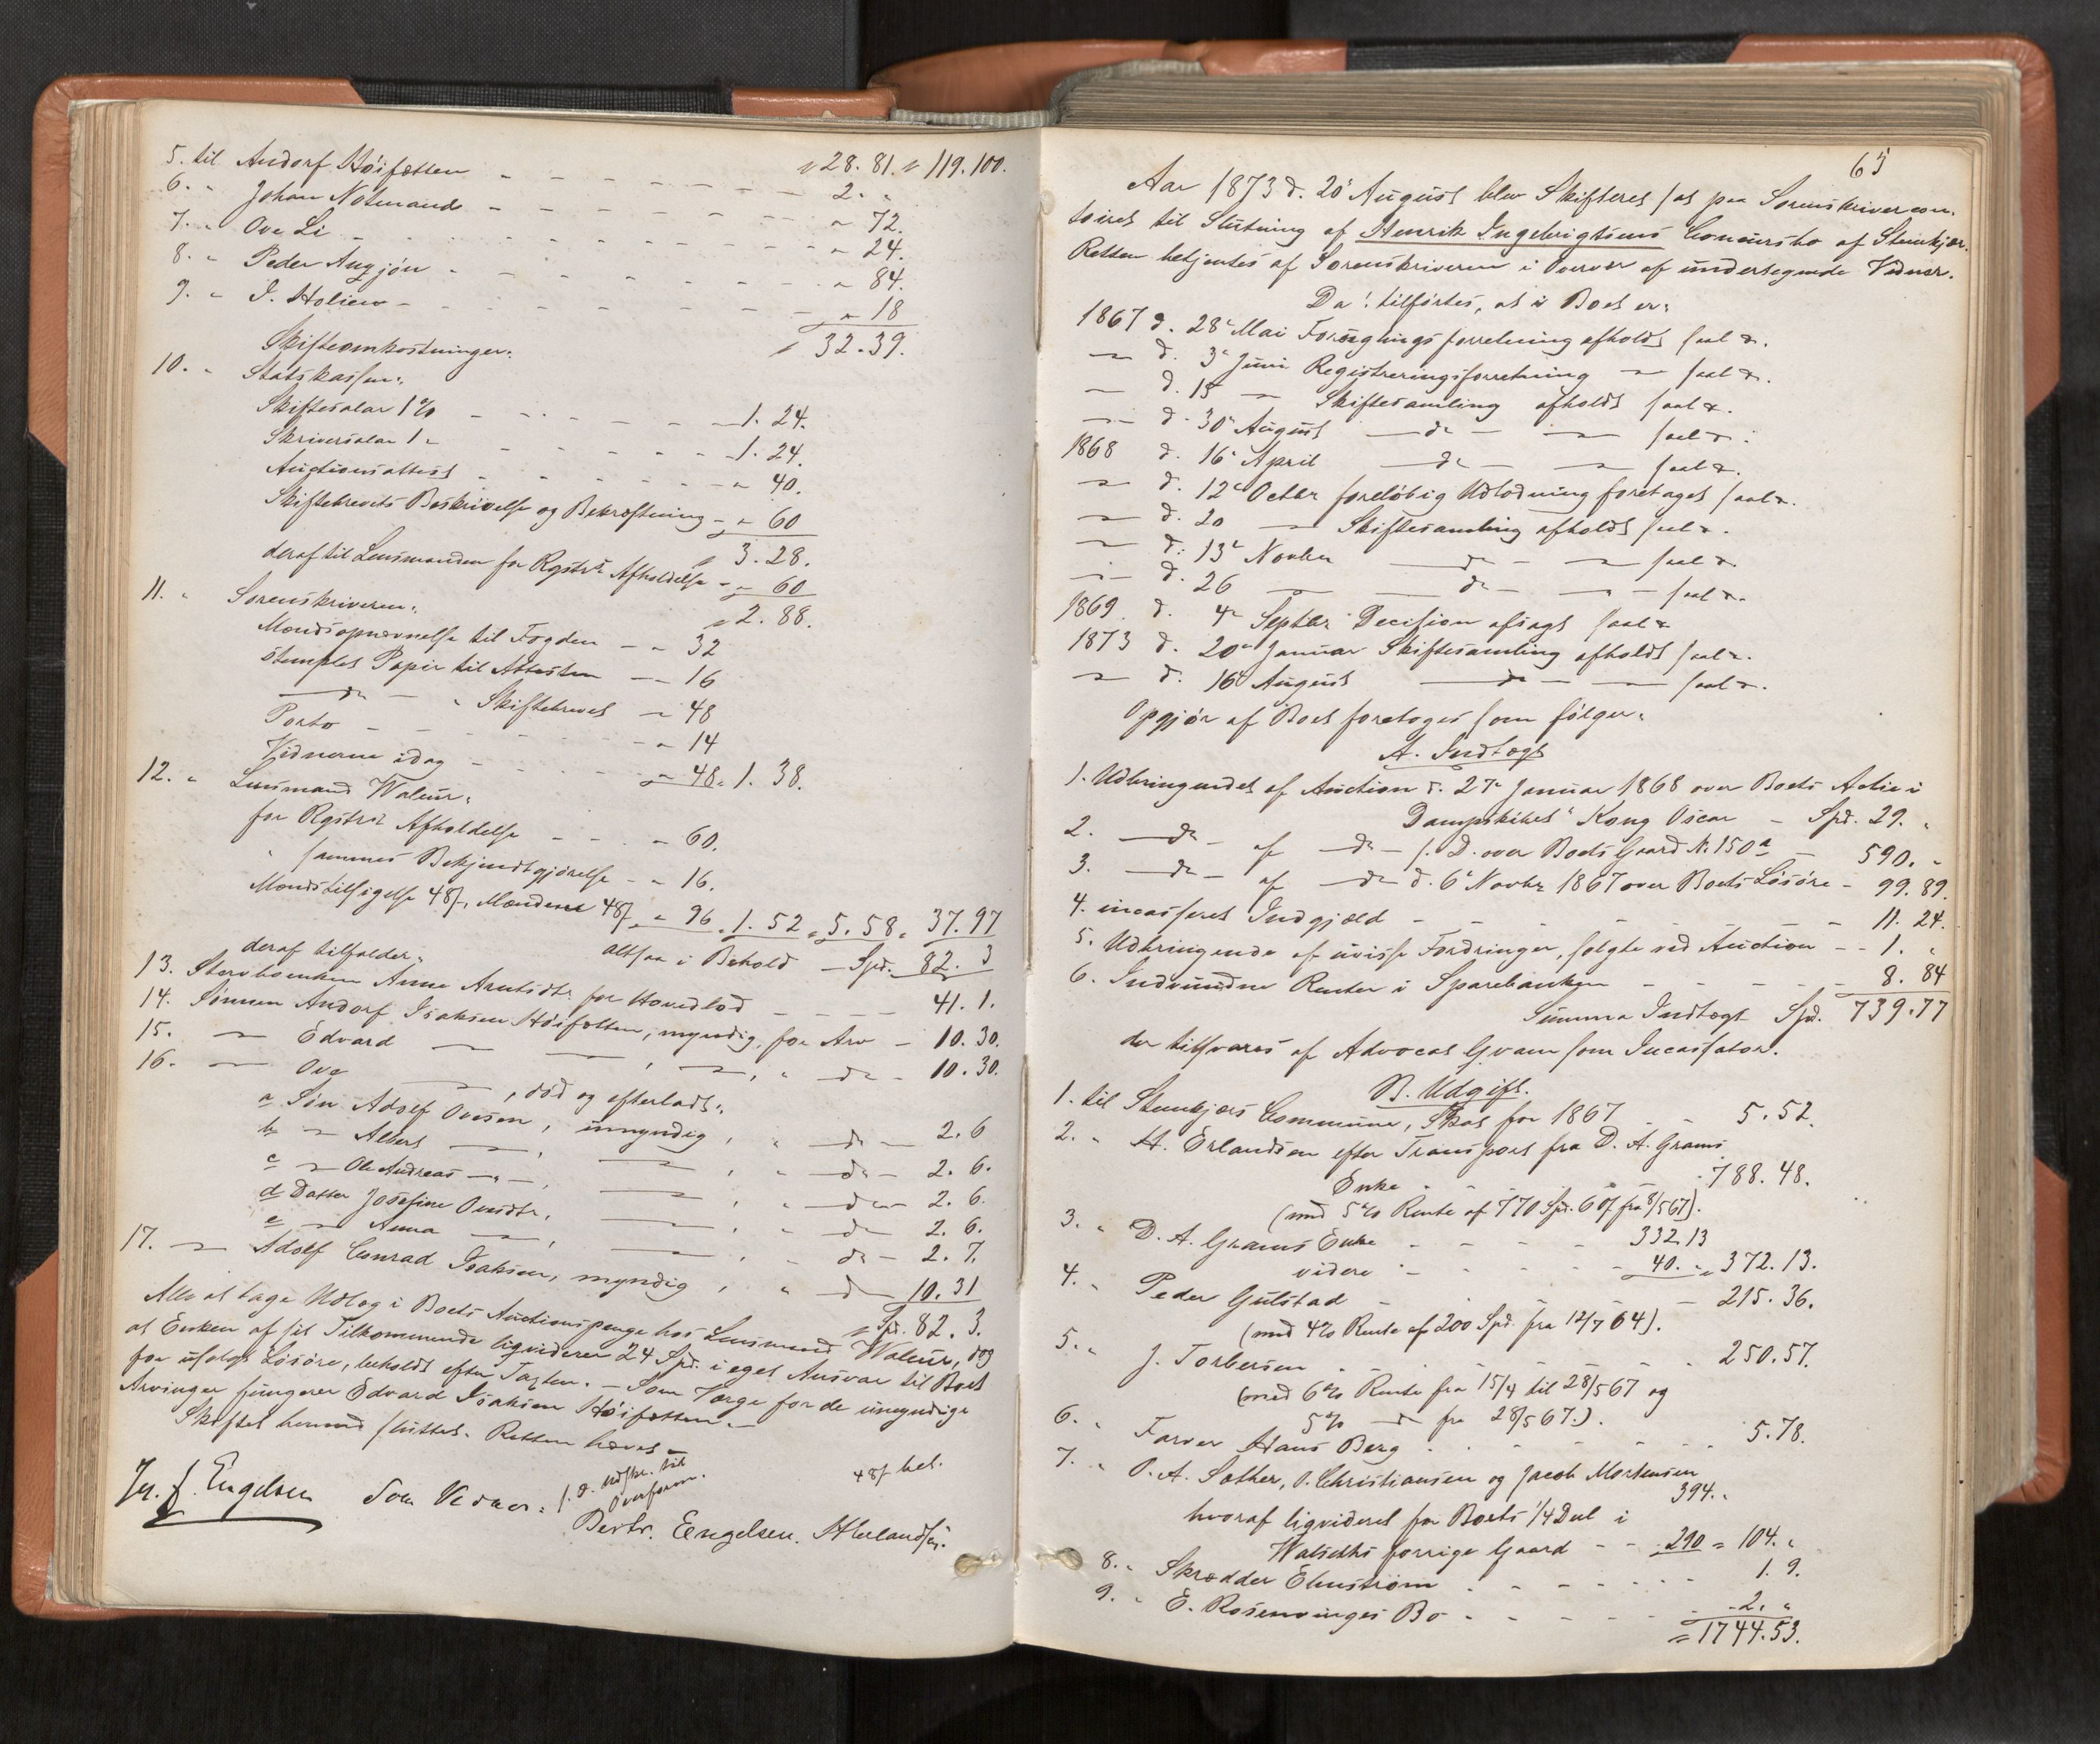 5. til Andorf Höifatten - - - - - " 28. 81. " 119. 100.
6. " Johan Nötmands - - - - - 2. "
7. " Ove Li - - - - - " 72.
8. " Peder Augjón - - - - - " 24.
9. " I. Holiem - - - - - " 84.
" 18
Skifteomkostninger: " 32. 39.
10. " Statskassen:
Skiftesalar 1% - - - - - 1. 24.
Skriversalar 1 " - - - - - 1. 24.
Auctionsattest - - - - - " 40.
Skiftebrevets Beskrivelse og Bekræftning - " 60
" 3. 28.
deraf til Lensmanden for Rgstr. Afholdelse - " 60
" 2. 88.
11. " Sorenskriveren:
Mændsopnævnelse til Fogden - " 32
Stemplet Papir til Attesten - - 16
— do — " Skiftebrevet - " 48
Porto - - - - " 14
Vidnerne idag - - - " 48 " 1. 38.
12. " Lensmand Walür:
for Rgstr. Afholdelse - - - " 60.
" sammes Bekjendtgjörelse - " 16.
Mændstilsigelse 48 s, Mændene 48 s " 96 " 1. 52 " 5. 58 " 37. 97
altsaa i Behold - Spd. 82. 3
deraf tilfalder:
13. Stervboenken Anne Arntsdtr for Hovedlod - - - - 41. 1.
14. Sönnen Andorf Isaksen Höifatten, myndig, for Arv - 10. 30.
15. — Edvard — — , — , " do - 10. 30.
16. — Ove — , död og efterladt:
a Sön Adolf Ovesen, umyndig, " do - 2. 6
b — Albert — , — , " do - 2. 6.
c — Ole Andreas — , — , " do - 2. 6.
d Datter Josefine Ovesdtr, — , " do - 2. 6.
e — Anna — , — , " do - 2. 7.
17. — Adolf Conrad Isaksen, myndig, " do 10. 31
" Spd. 82. 3.
Alle at tage Udlæg i Boets Auctionspenge hos Lensmand Walür, dog
at Enken af sit Tilkommende ligviderer 24 Spd. i eget Ansvar til Boet
for usolgt Lösöre, beholdt efter Taxten. - Som Værge for de umyndige
Arvinger fungerer Edvard Isaksen Höifatten. -
Skiftet hermed sluttet. Retten hævet -
J. J. Engelsen Som Vidner: f. d. Udskr. til Overform. 48 s bet.
Bertr. Engelsen. H Erlandsen.
65
Aar 1873 d. 20de August blev Skifteret sat paa Sorenskrivercon-
toiret til Slutning af Henrik Ingebrigtsens Concursbo af Stenkjær.
Retten betjentes af Sorenskriveren i Overvær af undertegnede Vidner.
Da: tilförtes, at i Boet er:
1867 d. 28de Mai Forseglingsforretning afholdt saal.
— d. 3de Juni Registreringsforretning — saal.
— d. 15 — Skiftesamling afholdt saal.
— d. 30de August — do — — saal.
1868 d. 16de April — do — — saal.
— d. 12te Octbr foreløbig Udlodning foretaget saal.
— d. 20 — Skiftesamling afholdt saal.
— d. 13de Novbr — do — — saal.
— d. 26 — — do — — saal.
1869 d. 4de Septbr Decision afsagt saal.
1873 d. 20de Januar Skiftesamling afholdt saal.
— d. 16de August — do — — saal.
Opgjör af Boet foretoges som fölger:
A. Indtægt
1. Udbringendet af Auction d. 27de Januar 1868 over Boets Actie i
Dampskibet "Kong Oscar - Spd. 29. "
2. — do — af — do — s. D. over Boets Gaard No 150a - 590. "
3. — do — af — do d. 6te Novbr 1867 over Boets Lösöre - 99. 89.
4. incasseret Indgjæld - - - - - 11. 24.
5. Udbringende af uvisse Fordringer, solgte ved Auction - - 1. "
6. Indvundne Renter i Sparebanken - - - - - 8. 84
Summa Indtægt Spd. 739. 77
der tilsvares af Advocat Gram som Incassator.
B. Udgift.
1. til Stenkjærs Commune, Skat for 1867 - - 5. 52.
2. " H. Erlandsen efter Transport fra D. A. Grams
Enke - - - - 788. 48.
(med 5% Rente af 770 Spd. 60 s fra 8/5 67).
3. " D. A. Grams Enke - - - - 332. 13
videre - - - - - 40. " " 372. 13.
4. " Peder Gulstad - - - - - 215. 36.
(med 4% Rente af 200 Spd. fra 12/7 64).
5. " J. Torbersen - - - - - 250. 57.
(med 6% Rente fra 15/4 til 28/5 67 og
5% do fra 28/5 67.).
6. " Farver Hans Berg - - - - - 5. 78.
7. " O. A. Sother, O. Christiansen og Jacob Mortensen
394. "
hvoraf ligvideret for Boets 1/4 Deel i
forrige Gaard - - 290 = 104. "
8. " Skrædder Elmström - - - - - 1. 9.
9. " E. Rosenvinges Bo - - - - - 2. "
= 1744. 53.